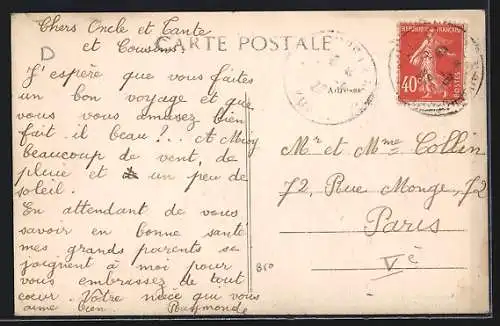 Chers Oncle et Tante
et Cousins
D
CARTE POSTALE
J'espère que vous faites
un bon voyage et que
vous vous amusez bien
fait il beau?.. A
beaucoup de vent, de
pluie et un peu de
soleil.
En attendant de vous
savoir en bonne santé
mes grands parents se
joignent à moi pour
vous embrassez de tout
cœur. Votre nièce qui vous
aime bien Raymonde
Adresse
RÉPUBLIQUE FRANÇAISE
40c
POSTES
Mr et Mme Collin
72, Rue Monge, 72
Paris
Ve